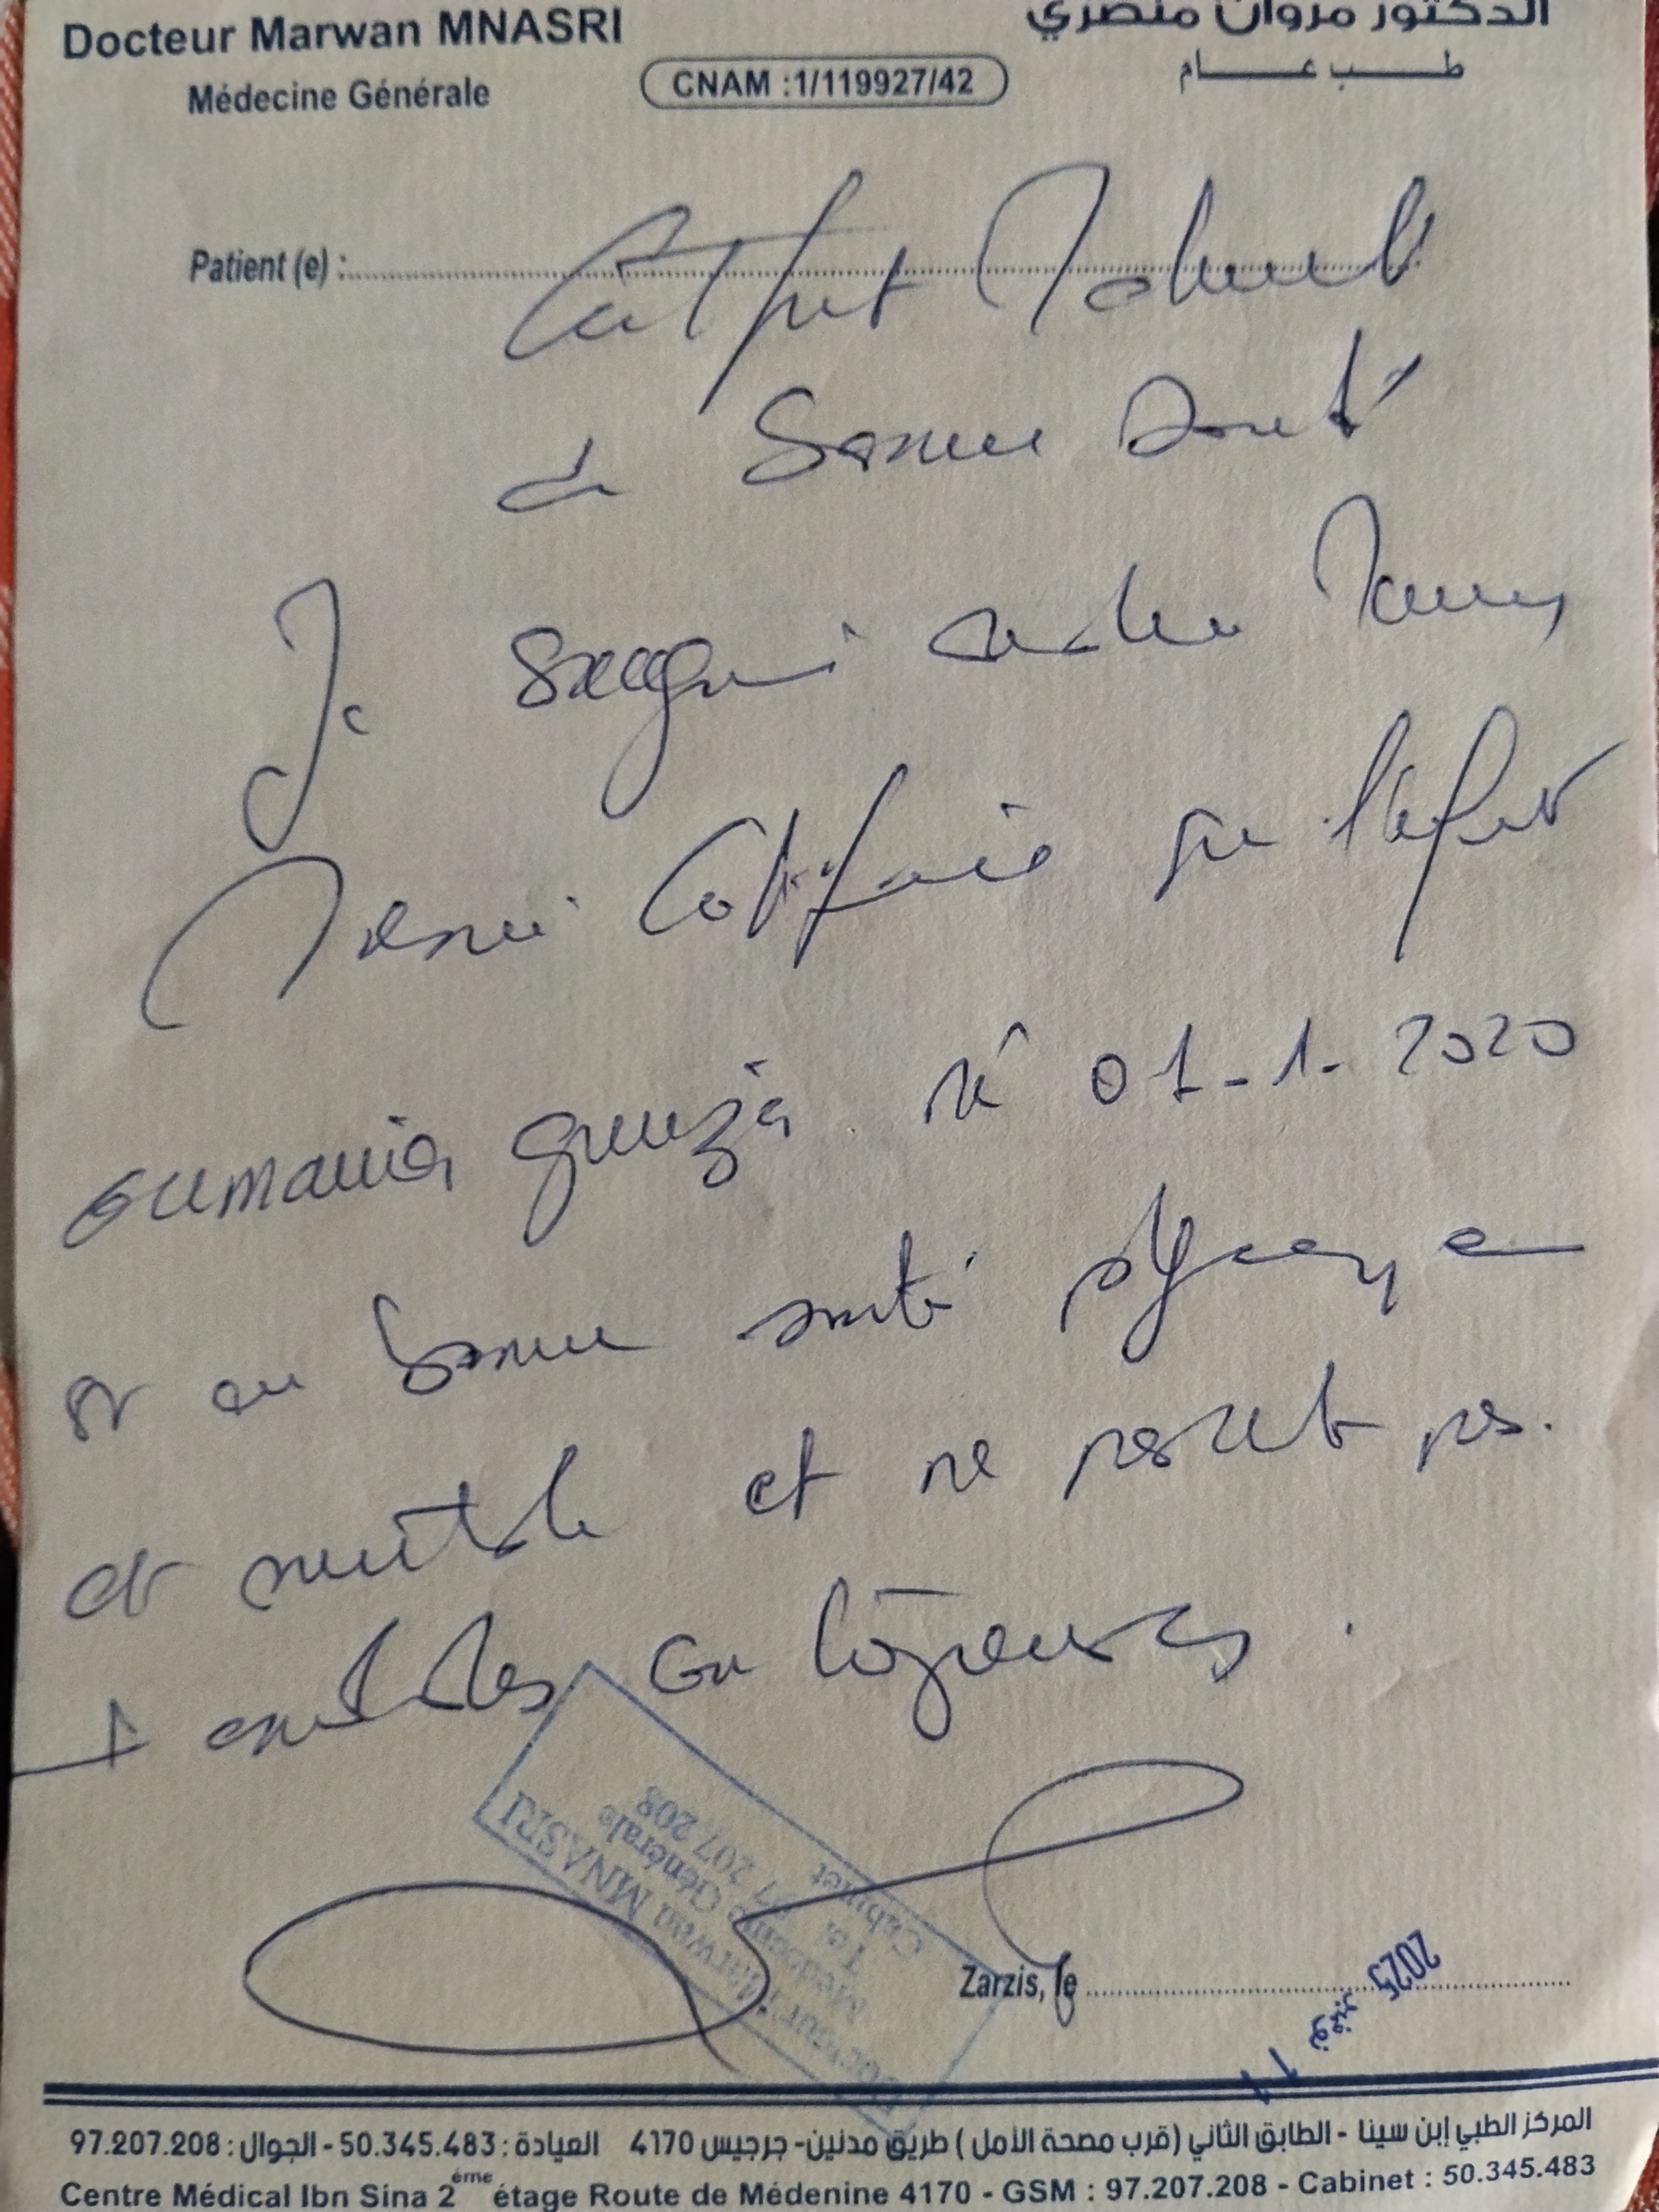 Docteur Marwan MNASRI
الدكتور مروان منصري
Médecine Générale
CNAM :1/119927/42
طب عام
Patient (e) : Certificat Médical
de Bonne Santé
Je soussigné docteur Marwan
Mnasri Certifie que l'enfant
oumania né 01-1-2020
est en bonne santé physique
et mentale et ne présente pas
de maladies contagieuses.
Docteur Marwan MNASRI
Médecine Générale
Tel. 97 207 208
Cabinet
Zarzis, le
11 نوفمبر 2025
المركز الطبي إبن سينا - الطابق الثاني (قرب مصحة الأمل) طريق مدنين- جرجيس 4170 العيادة : 50.345.483 - الجوال : 97.207.208
Centre Médical Ibn Sina 2éme étage Route de Médenine 4170 - GSM : 97.207.208 - Cabinet : 50.345.483